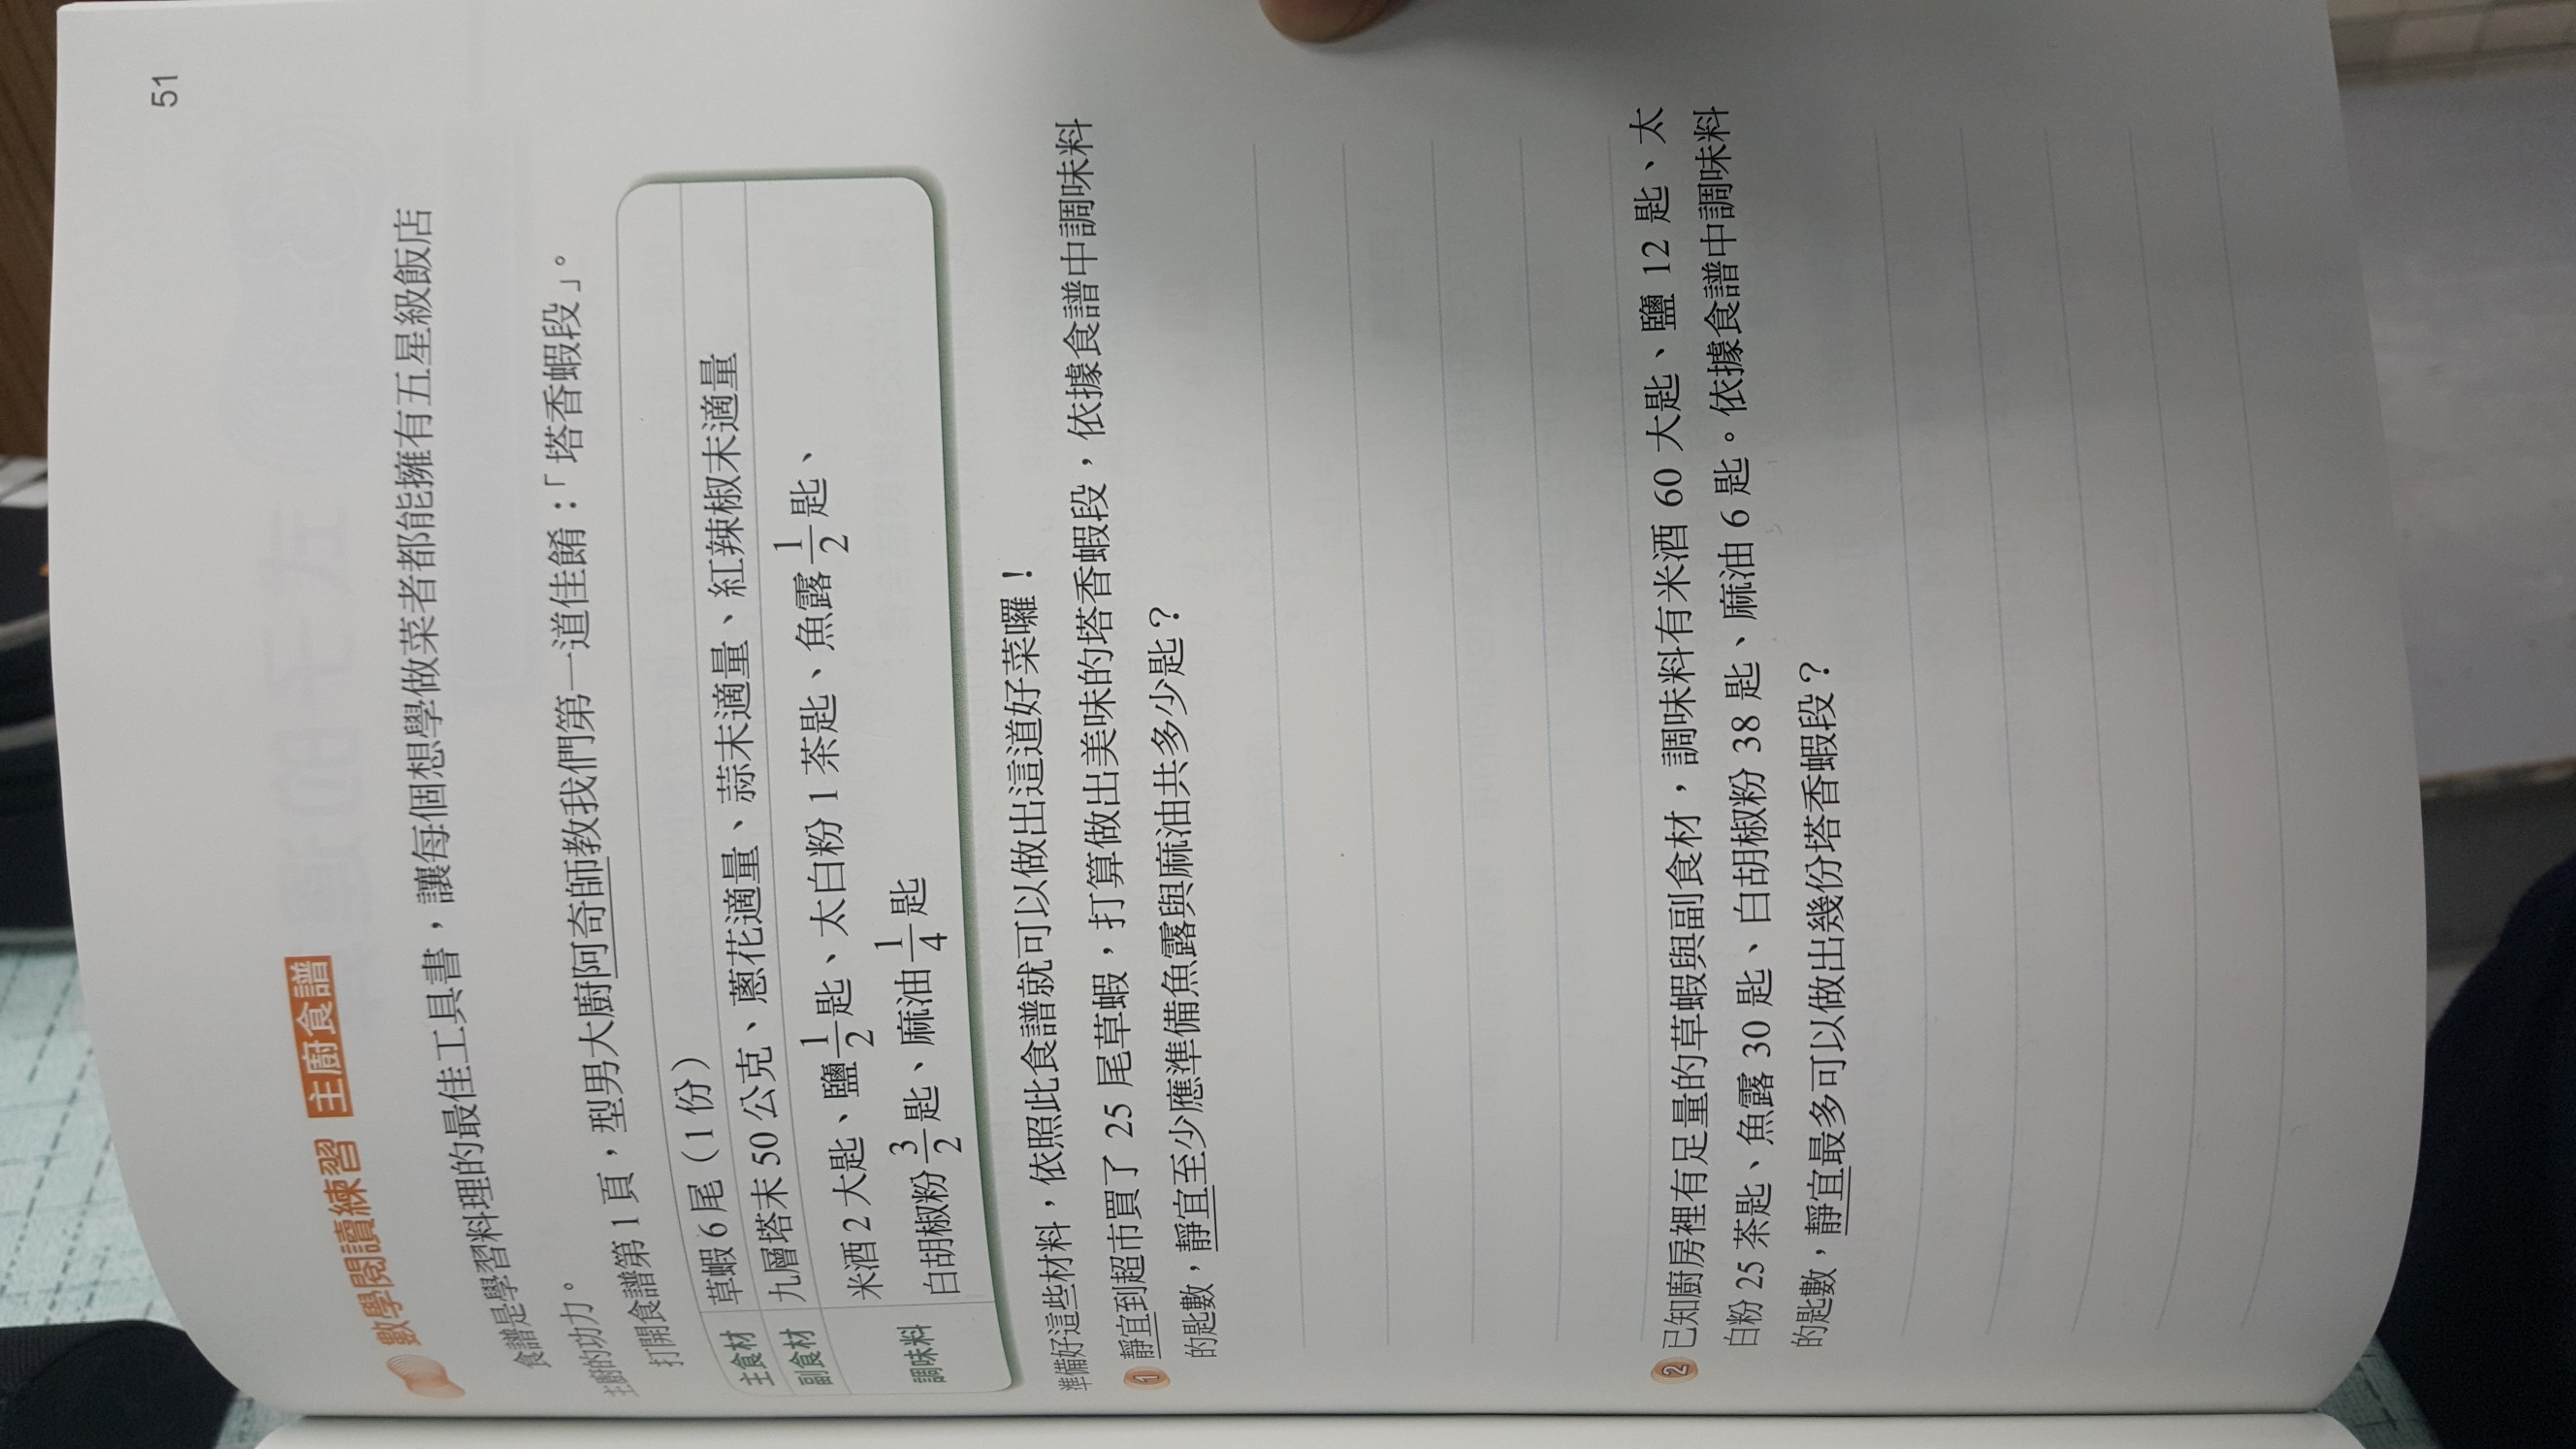 數學閱讀練習 主廚食譜
食譜是學習料理的最佳工具書，讓每個想學做菜者都能擁有五星級飯店
主廚的功力。
打開食譜第 1 頁，型男大廚阿奇師教我們第一道佳餚：「塔香蝦段」。
主食材 草蝦 6 尾（1 份）
副食材 九層塔末 50 公克、蔥花適量、蒜末適量、紅辣椒末適量
調味料 米酒 2 大匙、鹽 1/2 匙、太白粉 1 茶匙、魚露 1/2 匙、
白胡椒粉 3/2 匙、麻油 1/4 匙
準備好這些材料，依照此食譜就可以做出這道好菜囉！
1 靜宜到超市買了 25 尾草蝦，打算做出美味的塔香蝦段，依據食譜中調味料
的匙數，靜宜至少應準備魚露與麻油共多少匙？
2 已知廚房裡有足量的草蝦與副食材，調味料有米酒 60 大匙、鹽 12 匙、太
白粉 25 茶匙、魚露 30 匙、白胡椒粉 38 匙、麻油 6 匙。依據食譜中調味料
的匙數，靜宜最多可以做出幾份塔香蝦段？
51